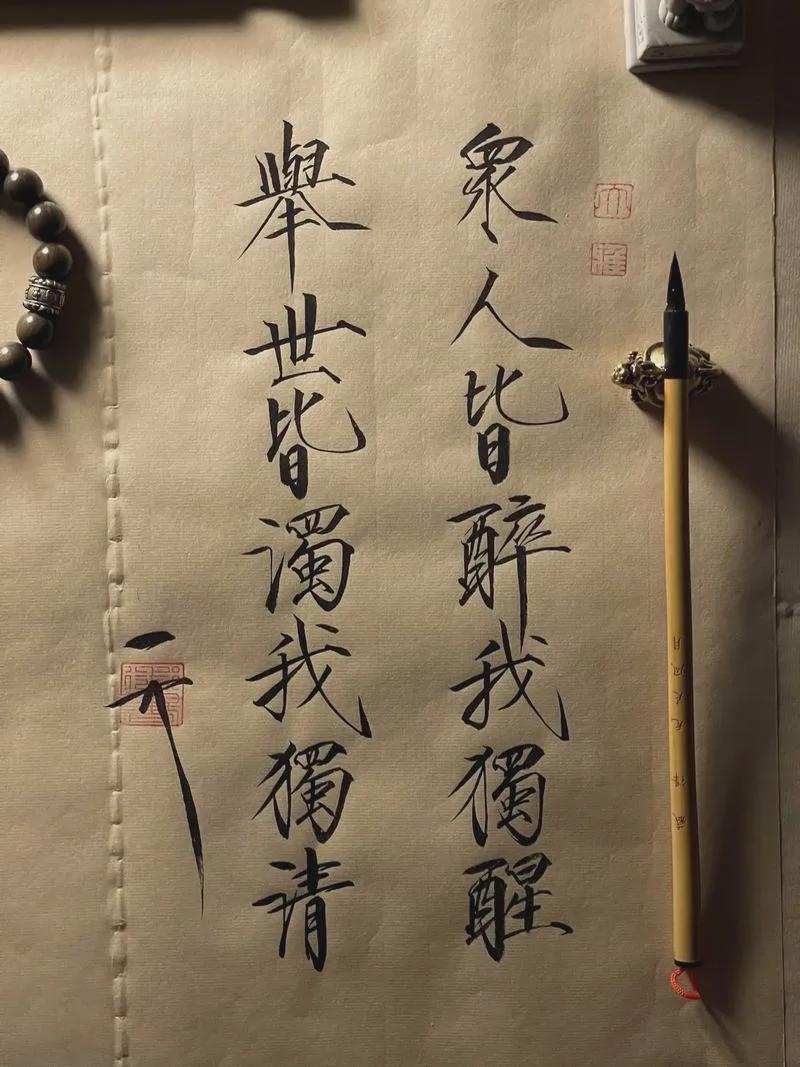 大
雅
眾人皆醉我獨醒
舉世皆濁我獨清